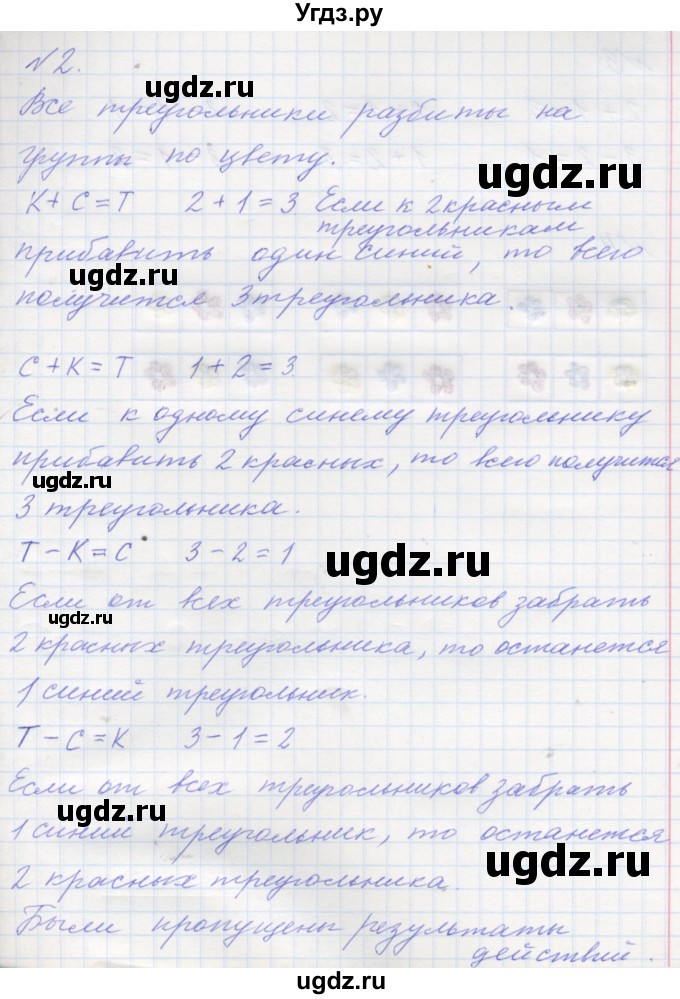 Угдз.ру
№2.
ugdz.ru
Все треугольники разбиты на
группы по цвету.
ugdz.ru
К+С=Т 2+1=3 Если к 2 красным
треугольникам
прибавить один синий, то всего
ugdz.ru
получится 3 треугольника.
С+К=Т 1+2=3
Если к одному синему треугольнику
прибавить 2 красных, то всего получится
ugdz.ru
3 треугольника.
Т-К=С 3-2=1
ugdz.ru
Если от всех треугольников забрать
ugdz.ru
2 красных треугольника, то останется
1 синий треугольник.
Т-С=К 3-1=2
Если от всех треугольников забрать
ugdz.ru
1 синий треугольник, то останется
ugdz.ru
2 красных треугольника.
Были пропущены результаты
действий.
ugdz.ru